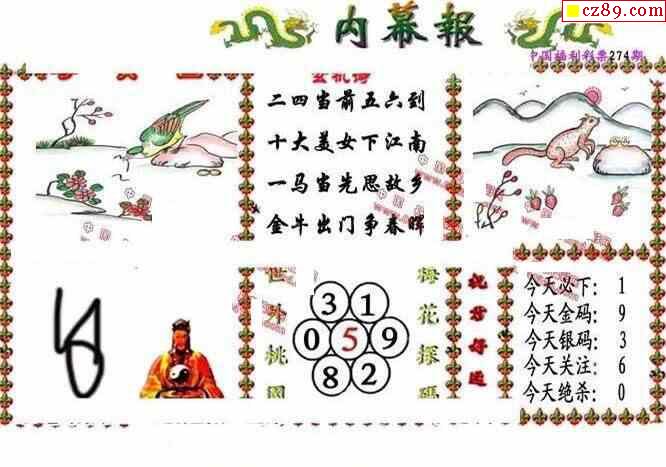 cz89.com
内幕報
中国福利彩票274期
玄机词
二四当前五六到
十大美女下江南
一马当先思故乡
金牛出门争春晖
世外桃园
3 1
0 5 9
8 2
梅花探码
祝君好运
今天必下: 1
今天金码: 9
今天银码: 3
今天关注: 6
今天绝杀: 0